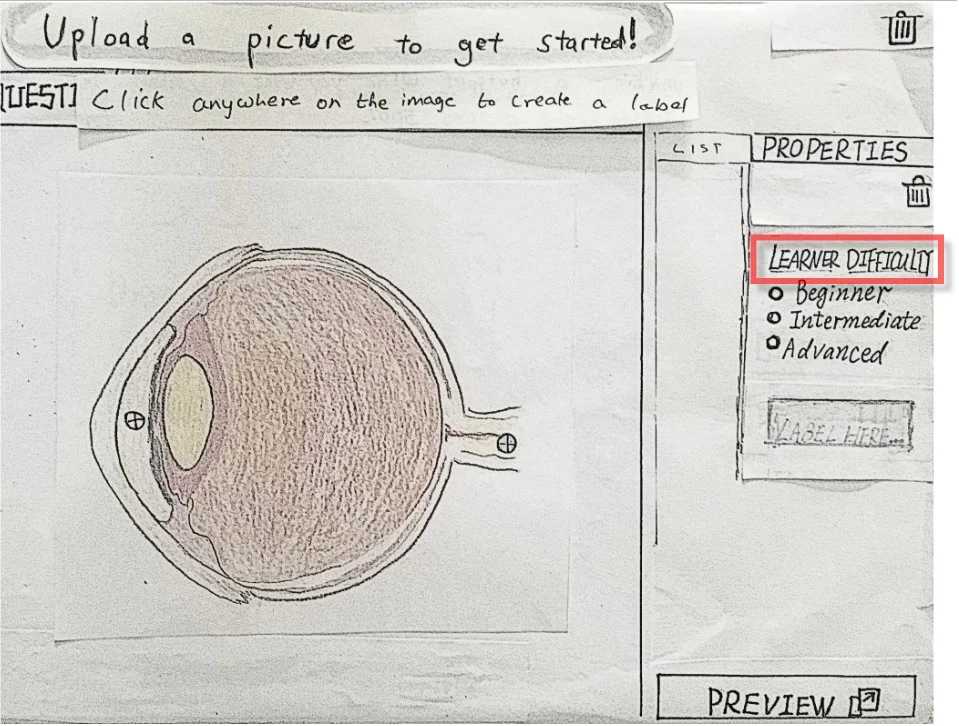 Upload a picture to get started!
QUESTI
Click anywhere on the image to create a label
LIST
PROPERTIES
LEARNER DIFFICULTY
Beginner
Intermediate
Advanced
LABEL HERE...
PREVIEW